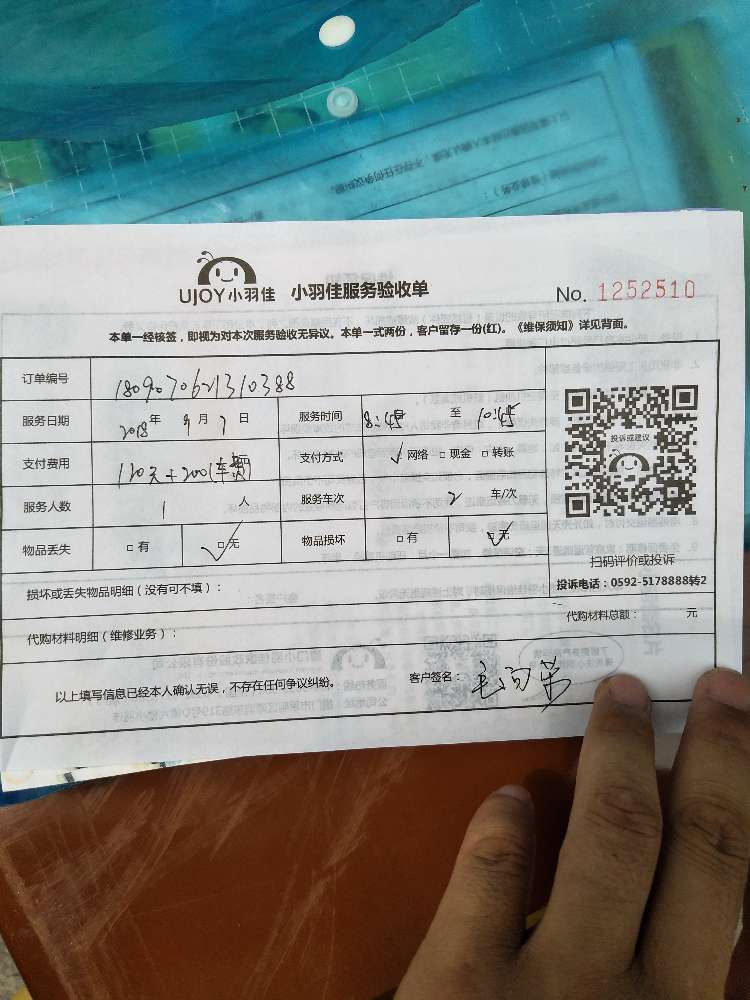 UJOY小羽佳 小羽佳服务验收单 No. 1252510
本单一经核签，即视为对本次服务验收无异议。本单一式两份，客户留存一份(红)。《维保须知》详见背面。
订单编号 1809070621310388
服务日期 2018年 9月 7日 服务时间 8:45 至 10:45
支付费用 120元+200(车费) 支付方式 √网络 □现金 □转账
服务人数 1 人 服务车次 2 车/次
物品丢失 □有 □无 物品损坏 □有 □无
投诉或建议
扫码评价或投诉
投诉电话：0592-5178888转2
损坏或丢失物品明细（没有可不填）：
代购材料明细（维修业务）： 代购材料总额： 元
以上填写信息已经本人确认无误，不存在任何争议纠纷。 客户签名：